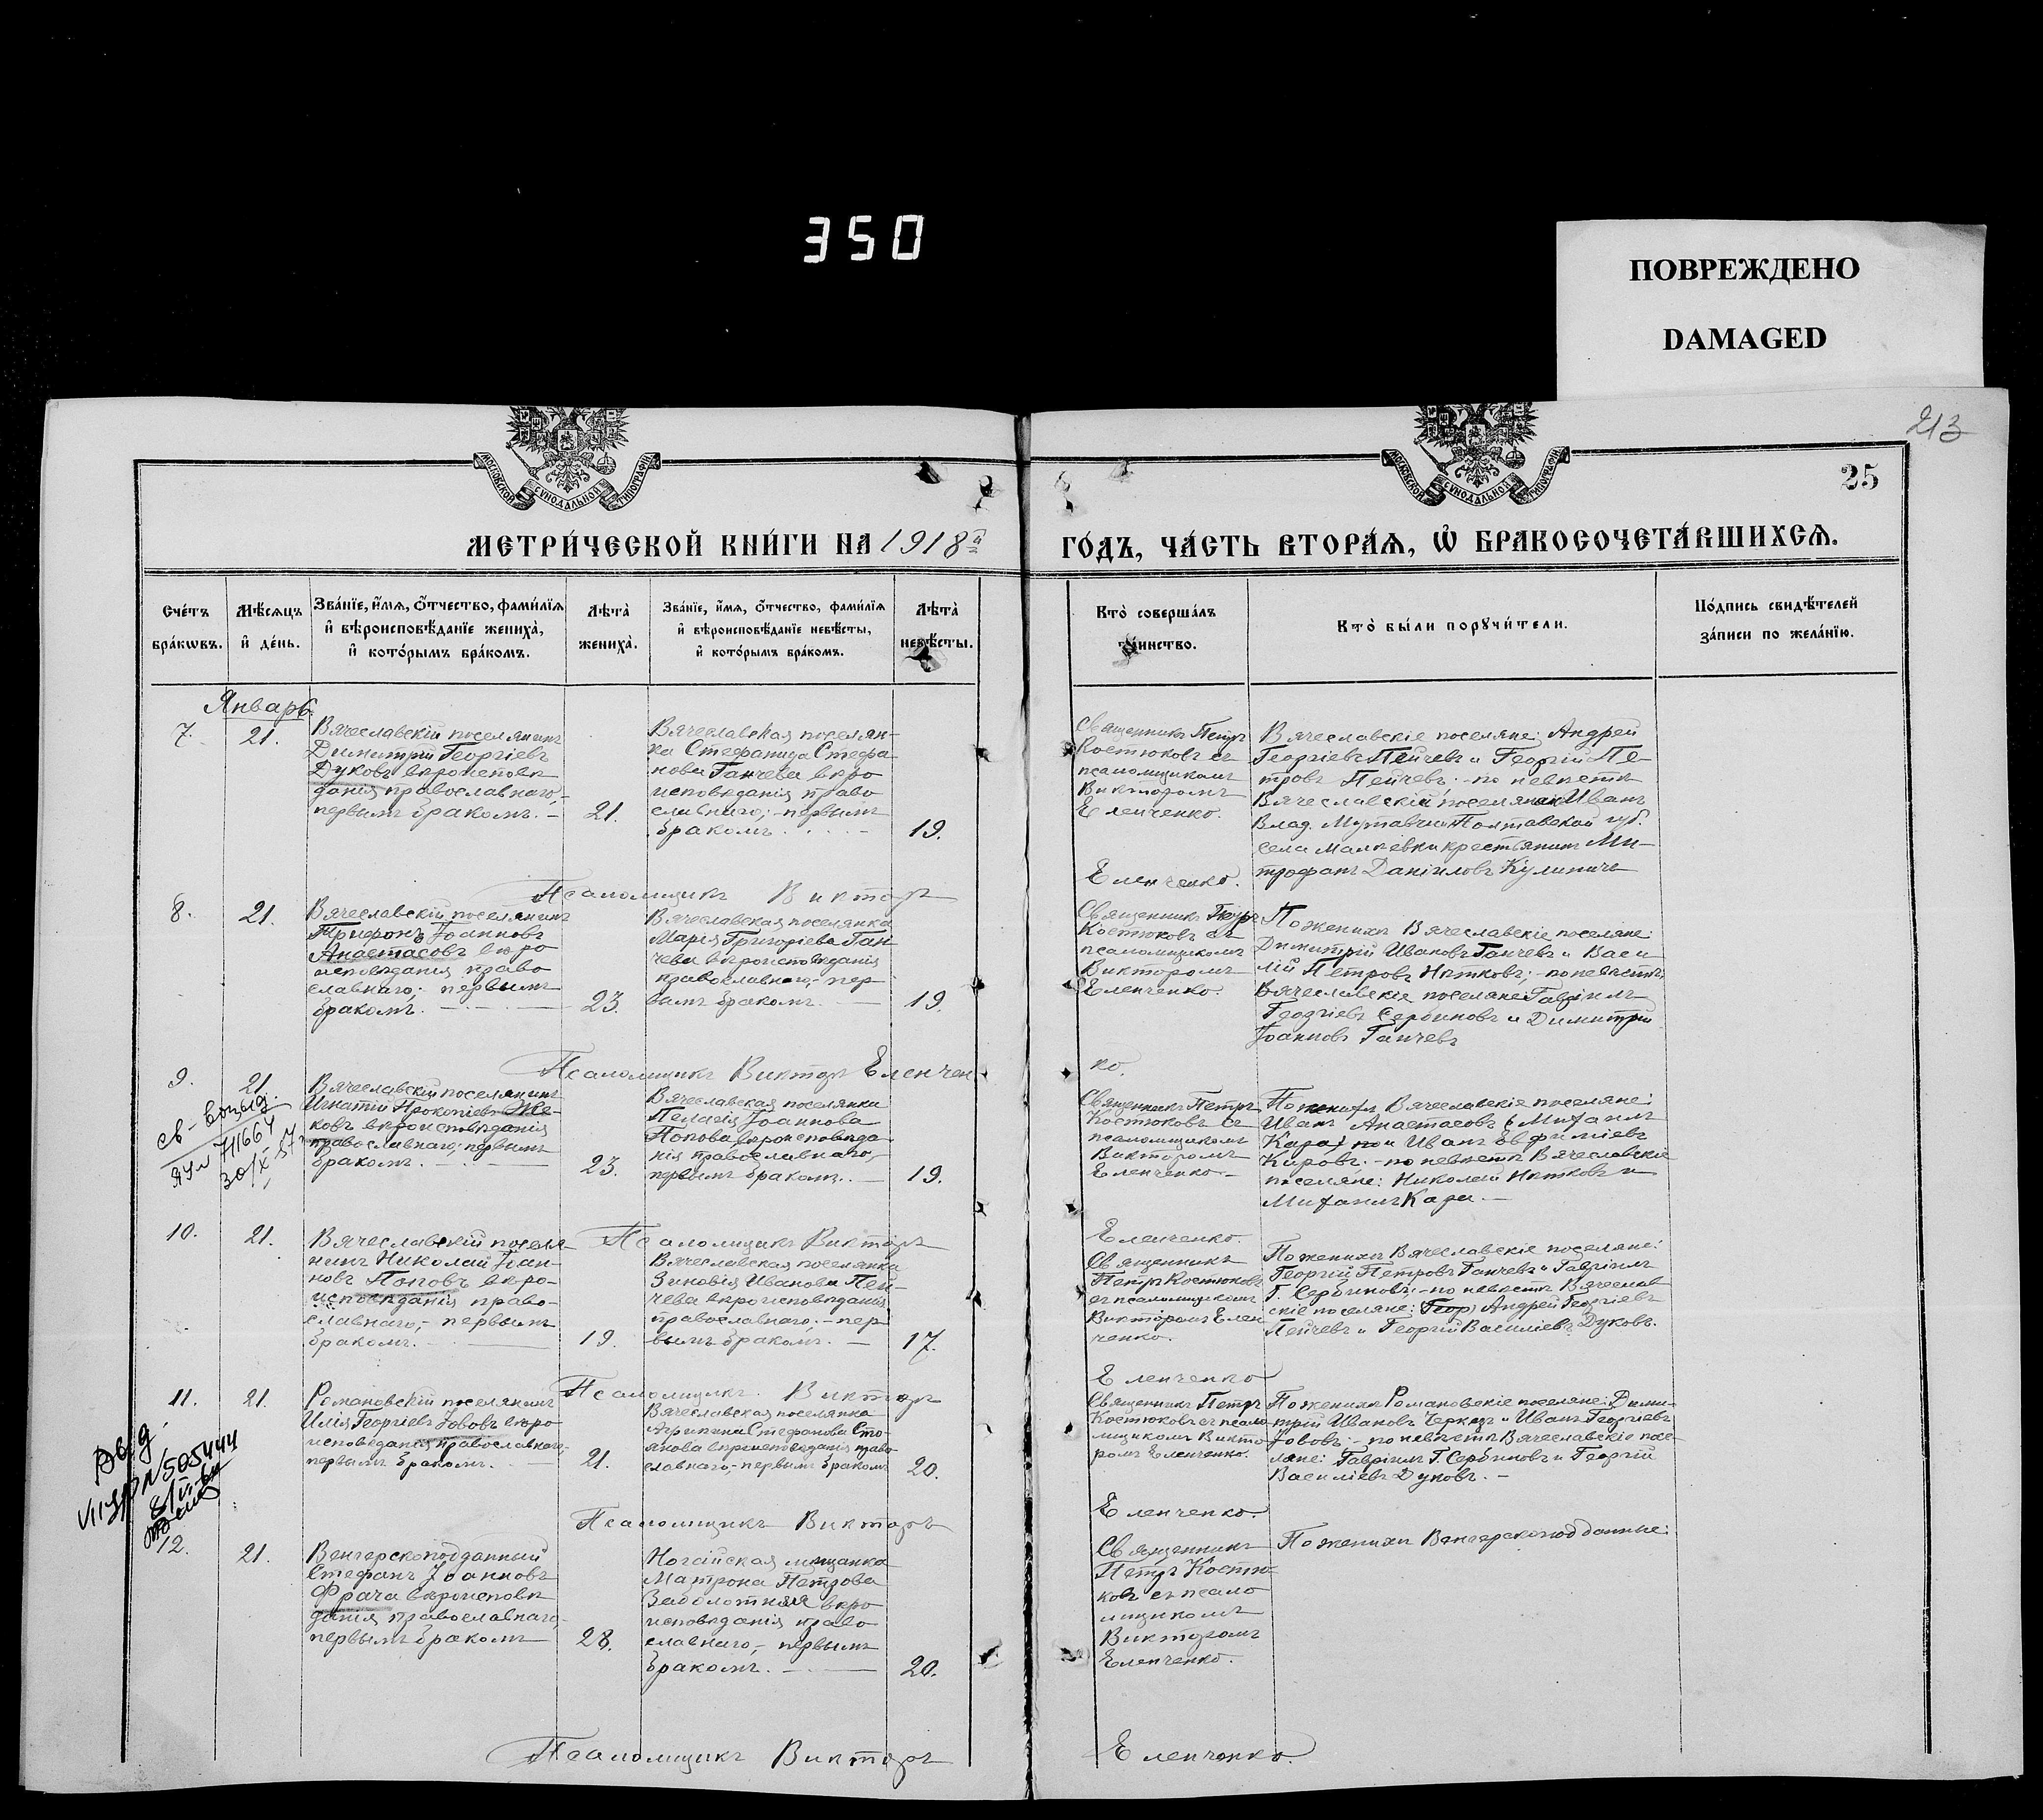 350
ПОВРЕЖДЕНО
DAMAGED
213
25
МОСКОВСКОЙ СѴНОДАЛЬНОЙ ТИПОГРАФІИ
МОСКОВСКОЙ СѴНОДАЛЬНОЙ ТИПОГРАФІИ
МЕТРИ́ЧЕСКОЙ КНИ́ГИ НА 1918й
ГО́ДЪ, ЧА́СТЬ ВТОРА́Ѧ, Ѽ БРАКОСОЧЕТА́ВШИХСѦ.
Счéтъ
брáкѡвъ.
Мѣ́сяцъ
и҆ дéнь.
Звáнїе, и҆́мѧ, ѻ҆́тчество, фами́лїѧ
и҆ вѣроисповѣ́данїе женихà,
и҆ котóрымъ брáкомъ.
Лѣ́та
женихà.
Звáнїе, и҆́мѧ, ѻ҆́тчество, фами́лїѧ
и҆ вѣроисповѣ́данїе невѣ́сты,
и҆ котóрымъ брáкомъ.
Лѣ́та
невѣ́сты.
Ктò совершáлъ
тáинство.
Ктò бы́ли порꙋчи́тели.
Пóдпись свидѣ́телей
зáписи по желáнїю.
Январь
7.
21.
Вячеславскій поселянинъ
Димитрій Георгіевъ
Дуковъ вѣроисповѣ
данія православнаго,-
первымъ бракомъ. -
21.
Вячеславская поселян-
ка Стефанида Стефа
нова Ганчева вѣро
исповѣданія право
славнаго;- первымъ
бракомъ. -
19.
Священникъ Петръ
Костюковъ съ
псаломщикомъ
Викторомъ
Еленченко.
Вячеславскіе поселяне: Андрей
Георгіевъ Пейчевъ и Георгій Пе-
тровъ Пейчевъ;- по невѣстѣ
Вячеславскій поселянинъ Иванъ
Влад. Полтавской губ.
села крестьянинъ Ми-
трофанъ Даніиловъ Кулиничъ
Псаломщикъ Викторъ
Еленченко.
8.
21.
Вячеславскій поселянинъ
Трифонъ Іоанновъ
Анастасовъ вѣро
исповѣданія право
славнаго;- первымъ
бракомъ. -
23.
Вячеславская поселянка
Марія Григоріева Ган
чева вѣроисповѣданія
православнаго,- пер
вымъ бракомъ. -
19.
Священникъ Петръ
Костюковъ съ
псаломщикомъ
Викторомъ
Еленченко.
По женихѣ Вячеславскіе поселяне:
Димитрій Ивановъ Ганчевъ и Васи
лій Петровъ Нятковъ;- по невѣстѣ
Вячеславскіе поселяне Гавріилъ
Георгіевъ Сербиновъ и Димитрій
Іоанновъ Ганчевъ
Псаломщикъ Викторъ Еленчен
ко.
9.
21.
Вячеславскій поселянинъ
Игнатій Прокопіевъ Же-
ковъ вѣроисповѣданія
православнаго; первымъ
бракомъ. -
23.
Вячеславская поселянка
Пелагія Іоаннова
Попова вѣроисповѣда
нія православнаго,-
первымъ бракомъ. -
19.
Священникъ Петръ
Костюковъ съ
псаломщикомъ
Викторомъ
Еленченко -
По женихѣ Вячеславскіе поселяне:
Иванъ Анастасовъ (Михаилъ
Кара) и Иванъ Евфиміевъ
Кировъ;- по невѣстѣ Вячеславскіе
поселяне: Николай Нятковъ и
Михаилъ Кара. -
св-
ЯУ № 711664
30/X 57 г
Псаломщикъ Викторъ
Еленченко.
10.
21.
Вячеславскій поселя-
нинъ Николай Іоан-
новъ Поповъ вѣро-
исповѣданія право-
славнаго,- первымъ
бракомъ. -
19.
Вячеславская поселянка
Зиновія Иванова Пей-
чева вѣроисповѣданія
православнаго,- пер
вымъ бракомъ. -
17.
Священникъ
Петръ Костюковъ
съ псаломщикомъ
Викторомъ Елен
ченко.
По женихѣ Вячеславскіе поселяне:
Георгій Петровъ Ганчевъ и Гавріилъ
Г. Сербиновъ;- по невѣстѣ Вячеслав
скіе поселяне: Андрей Георгіевъ
Пейчевъ и Георгій Василіевъ Дуковъ.
Псаломщикъ Викторъ
Еленченко
11.
21.
Романовскій поселянинъ
Илія Георгіевъ Іововъ вѣро
исповѣданія православнаго-
первымъ бракомъ. -
21.
Вячеславская поселянка
Агрипина Стефанова Сто-
янова вѣроисповѣданія право-
славнаго,- первымъ бракомъ
20.
Священникъ Петръ
Костюковъ съ псало-
мщикомъ Викто-
ромъ Еленченко.
По женихѣ Романовскіе поселяне: Дими-
трій Ивановъ Черкезъ и Иванъ Георгіевъ
Іововъ;- по невѣстѣ Вячеславскіе посе-
ляне: Гавріилъ Г. Сербиновъ и Георгій
Василіевъ Дуковъ. -
Выд
№505444
Псаломщикъ Викторъ
Еленченко.
12.
21.
Венгерскоподданный
Стефанъ Іоанновъ
Фрача вѣроисповѣ
данія православнаго,-
первымъ бракомъ
28.
Ногайская мѣщанка
Матрона Петрова
Заболотная вѣро
исповѣданія право
славнаго,- первымъ
бракомъ. -
20.
Священникъ
Петръ Костю-
ковъ съ псало
мщикомъ
Викторомъ
Еленченко.
По женихѣ Венгерскоподданные:
Псаломщикъ Викторъ
Еленченко.